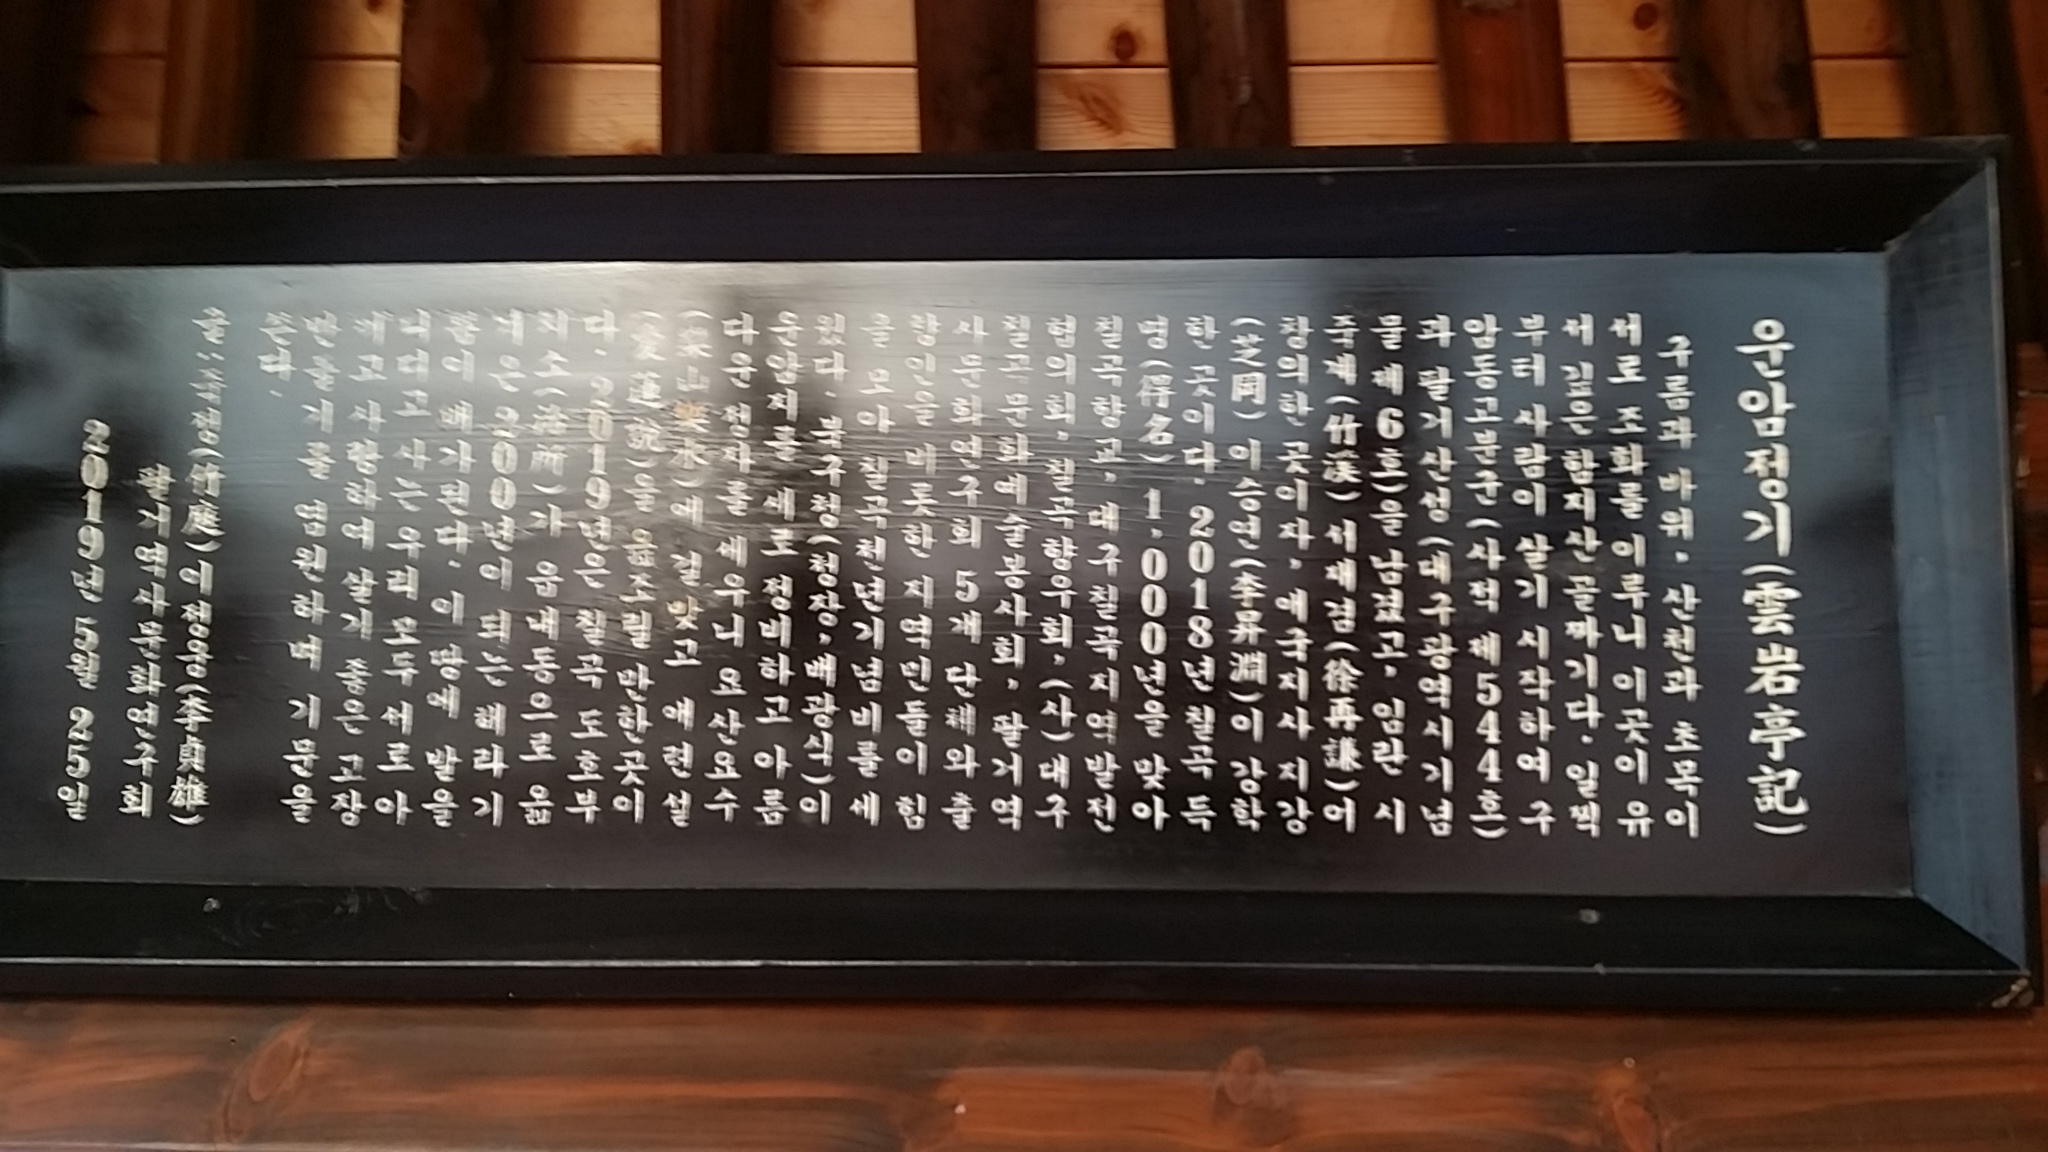 운암정기(雲岩亭記)
구름과 바위, 산천과 초목이
서로 조화를 이루니 이곳이 유
서 깊은 함지산 골짜기다. 일찍
부터 사람이 살기 시작하여 구
암동고분군(사적 제544호)
과 팔거산성(대구광역시기념
물 제6호)을 남겼고, 임란 시
죽계(竹溪) 서재겸(徐再謙)어
창의한 곳이자, 애국지사 지강
(芝岡) 이승연(李昇淵)이 강학
한 곳이다. 2018년 칠곡 득
명(得名) 1,000년을 맞아
칠곡향교, 대구칠곡지역발전
협의회, 칠곡향우회, (사)대구
칠곡문화예술봉사회, 팔거역
사문화연구회 5개 단체와 출
향인을 비롯한 지역민들이 힘
을 모아 칠곡천년기념비를 세
웠다. 북구청(청장, 배광식)이
운암지를 새로 정비하고 아름
다운 정자를 세우니 요산요수
(樂山樂水)에 걸맞고 애련설
(愛蓮說)을 읊조릴 만한곳이
다. 2019년은 칠곡 도호부
치소(治所)가 읍내동으로 옮
겨 온 200년이 되는 해라 기
쁨이 배가된다. 이 땅에 발을
디디고 사는 우리 모두 서로 아
끼고 사랑하여 살기 좋은 고장
만들기를 염원하며 기문을
쓴다.
이정웅(李貞雄)
팔거역사문화연구회
2019년 5월 25일